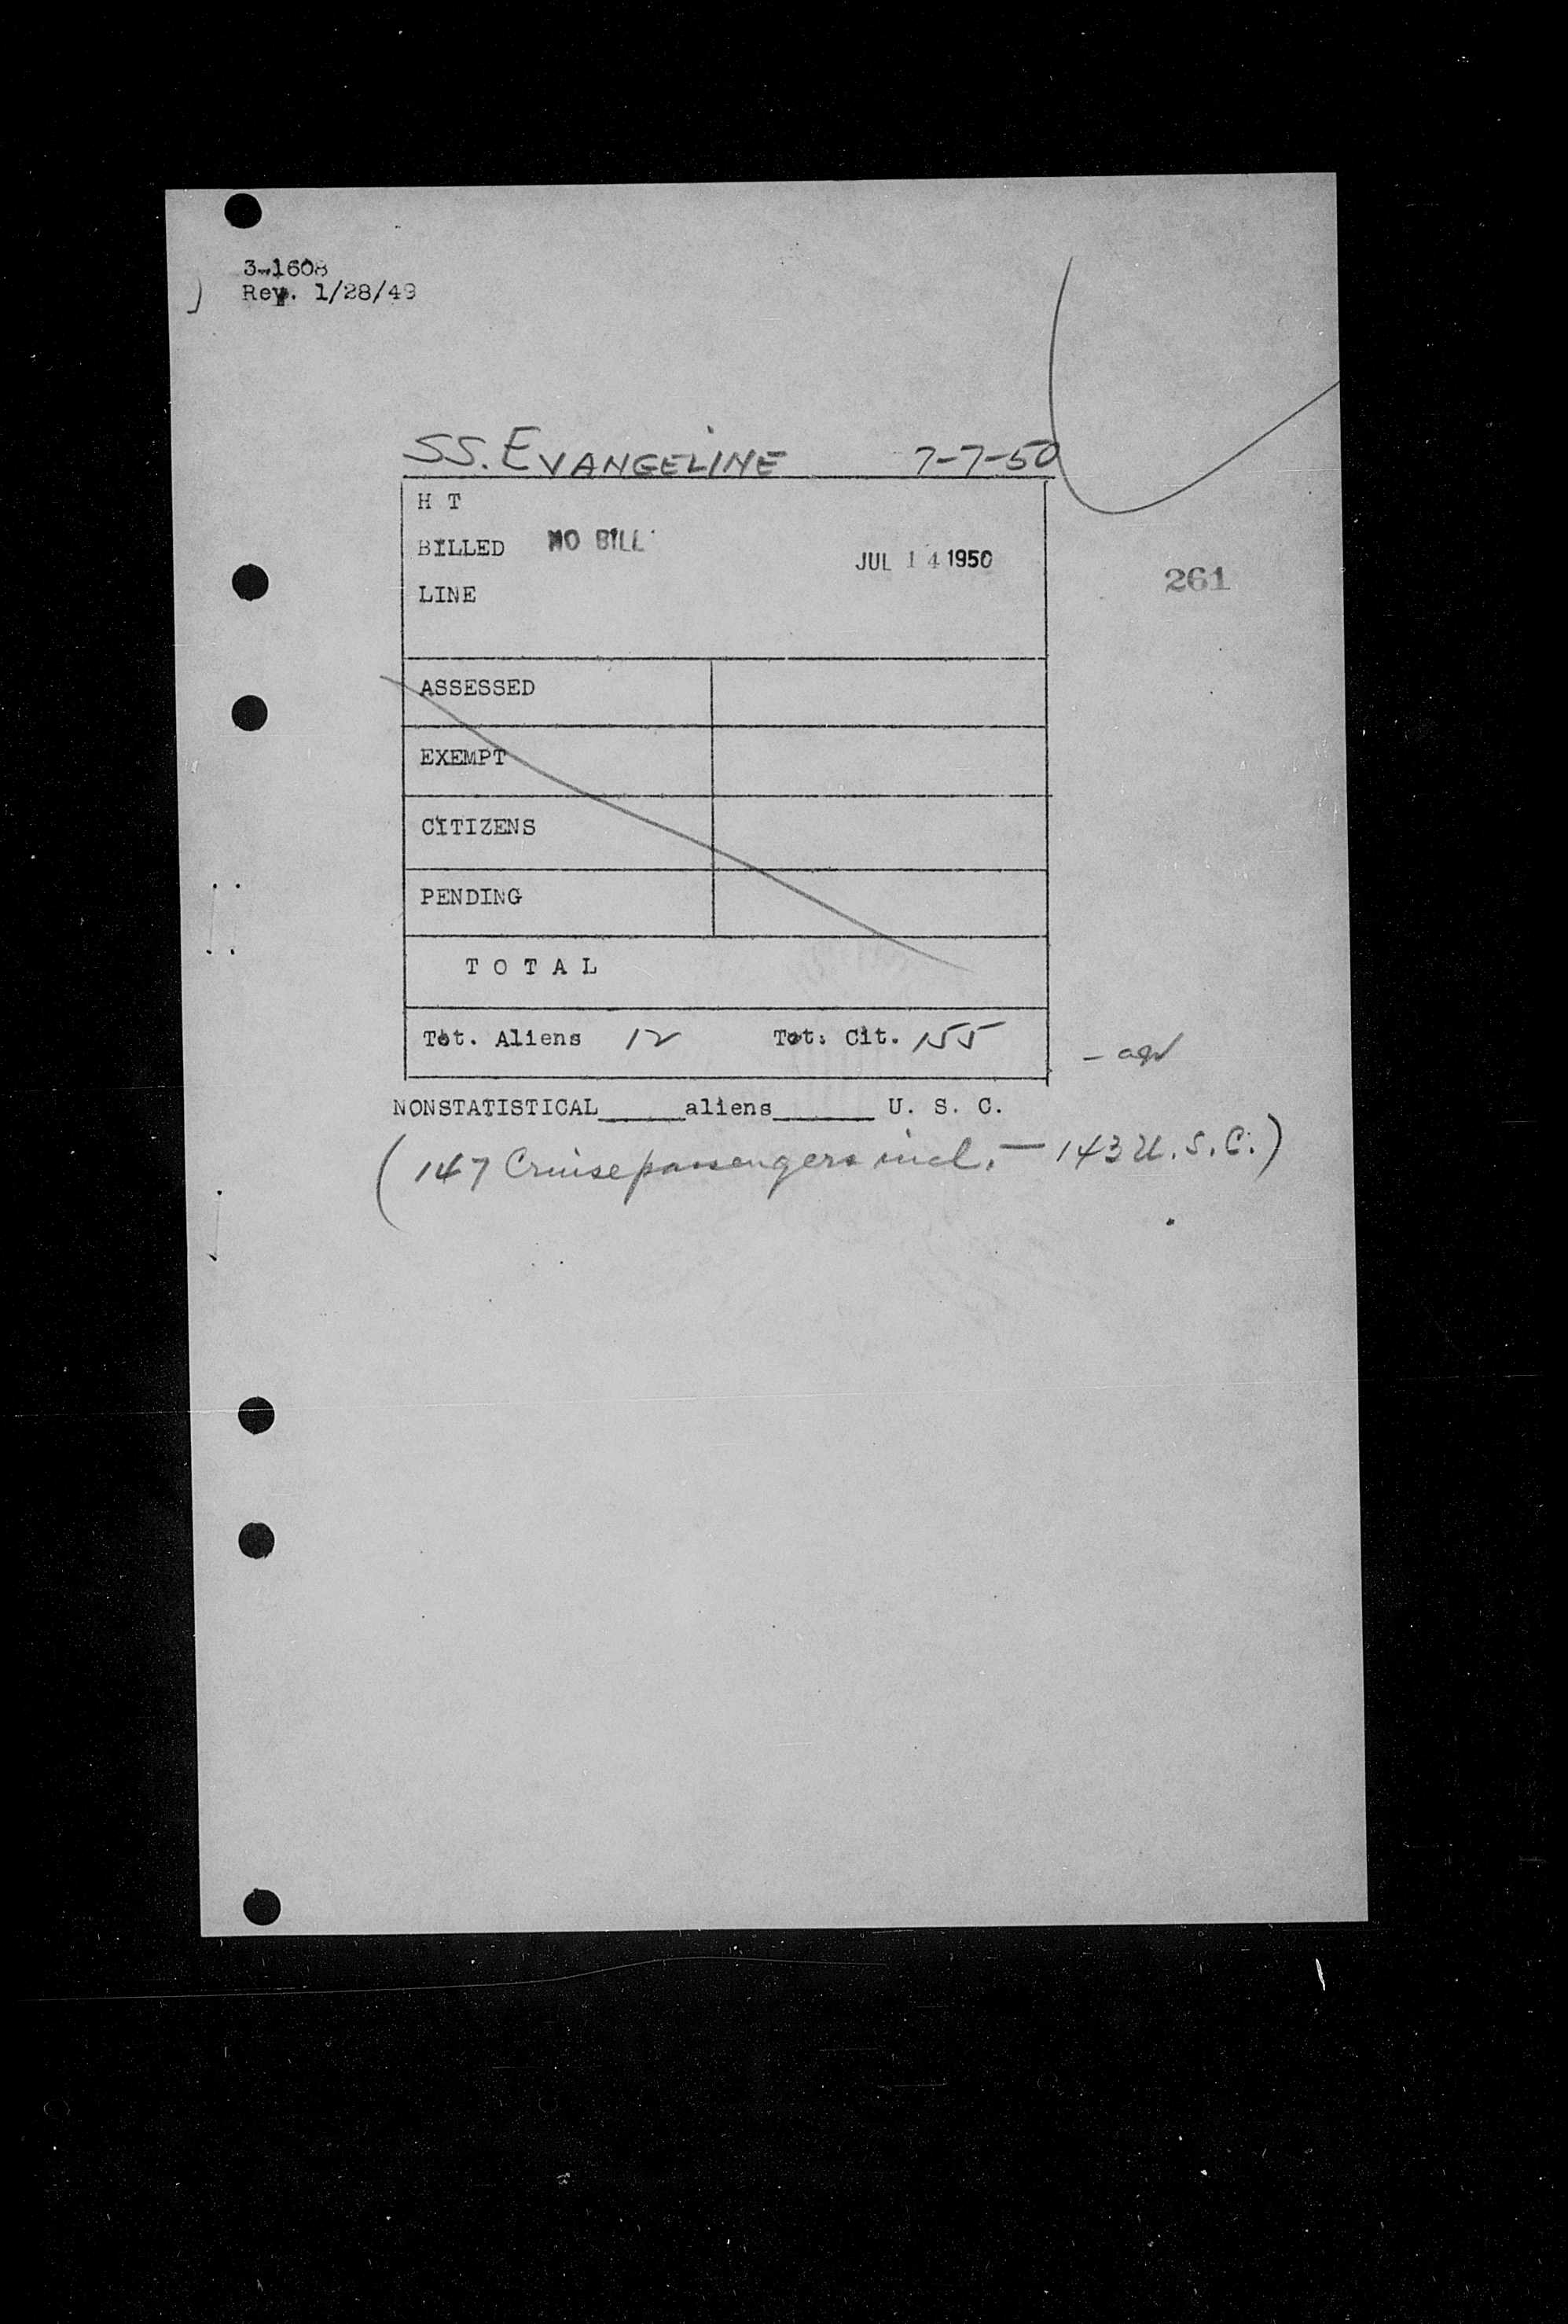 3-1608
Rev. 1/28/49
SS. EVANGELINE 7-7-50
H T
BILLED NO BILL JUL 14 1950
LINE
261
ASSESSED
EXEMPT
CITIZENS
PENDING
T O T A L
Tot. Aliens 12 Tot. Cit. 155
NONSTATISTICAL______aliens_______ U. S. C.
(147 Cruise passengers incl. — 143 U.S.C.)